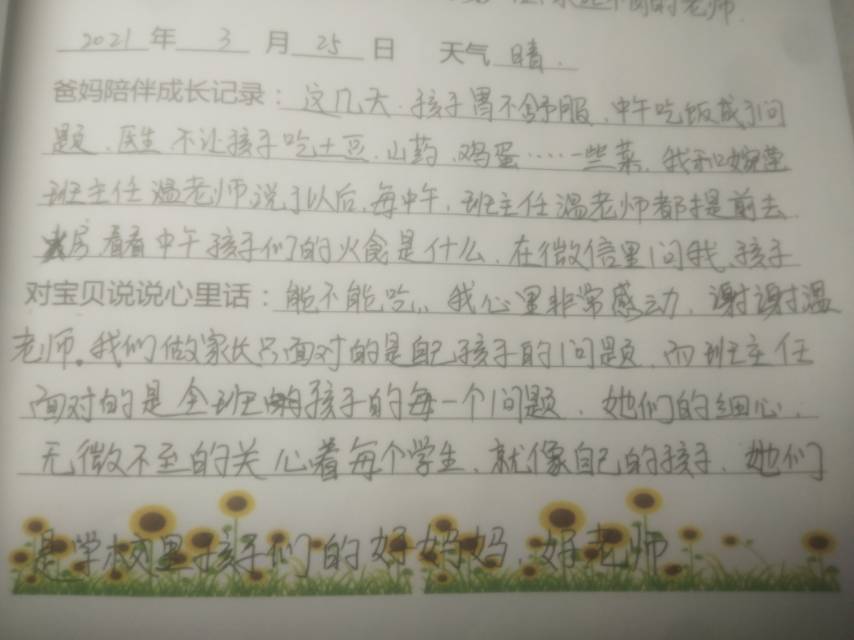 的老师.
2021 年 3 月 25 日 天气 晴.
爸妈陪伴成长记录：这几天.孩子胃不舒服、中午吃饭成了问
题、医生不让孩子吃土豆、山药、鸡蛋……一些菜、我和
班主任温老师说了以后、每中午、班主任温老师都提前去
房看看中午孩子们的火食是什么、在微信里问我、孩子
对宝贝说说心里话：能不能吃、我心里非常感动、谢谢温
老师。我们做家长只面对的是自己孩子的问题、而班主任
面对的是全班孩子的每一个问题、她们的细心、
无微不至的关心着每个学生、就像自己的孩子、她们
是学校里孩子们的好妈妈、好老师